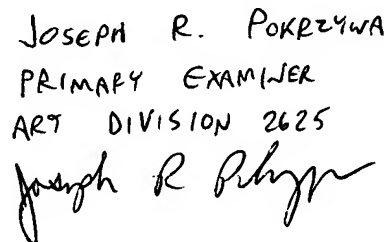 JOSEPH R. POKRZYWA
PRIMARY EXAMINER
ART DIVISION 2625
Joseph R